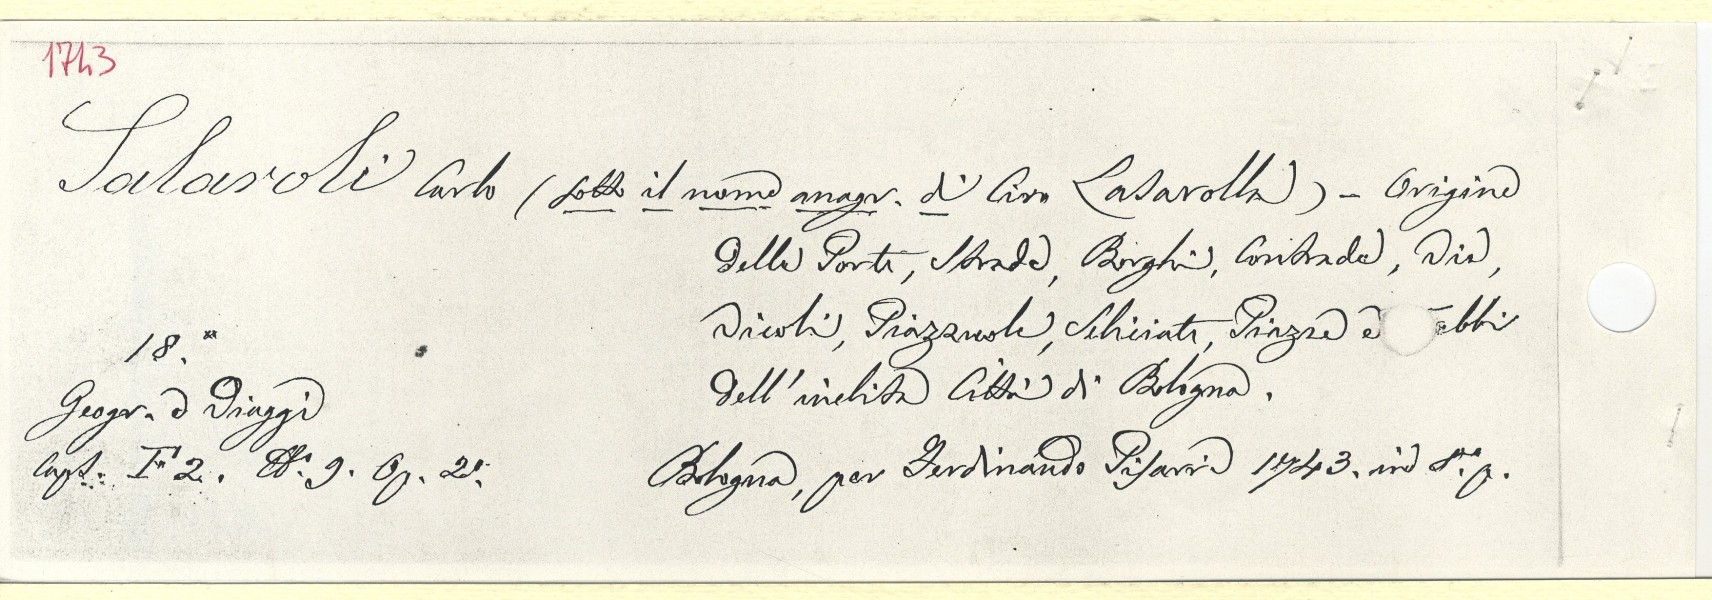 1743
Salaroli Carlo (sotto il nome anagr. di Ciro Lasarolla) - Origine
delle Porte, Strade, Borghi, Contrade, Vie,
Vicoli, Piazzuole, Selciate, Piazze e ebbi
dell'inclita Città di Bologna.
18.°
Geogr. e Viaggi
Capt. F 2. N. 9. Op. 2.
Bologna, per Ferdinando Pisarri 1743. in p.